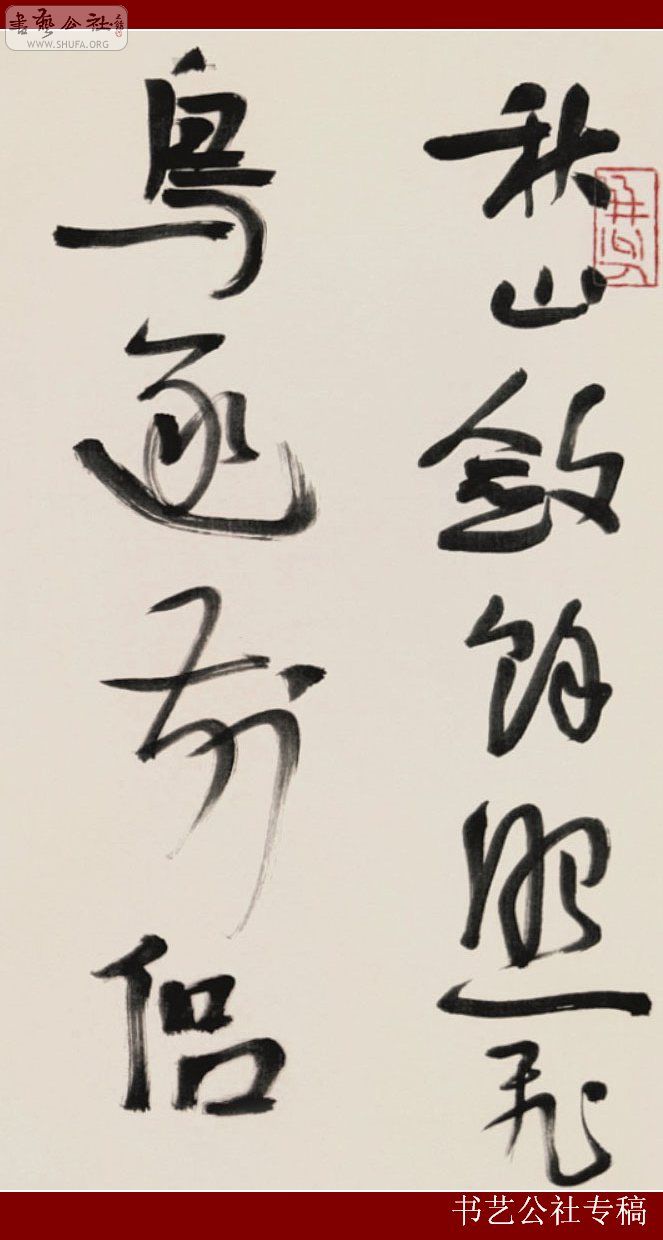 書藝公社
WWW.SHUFA.ORG
秋山斂餘照飛
鳥逐前侶
书艺公社专稿